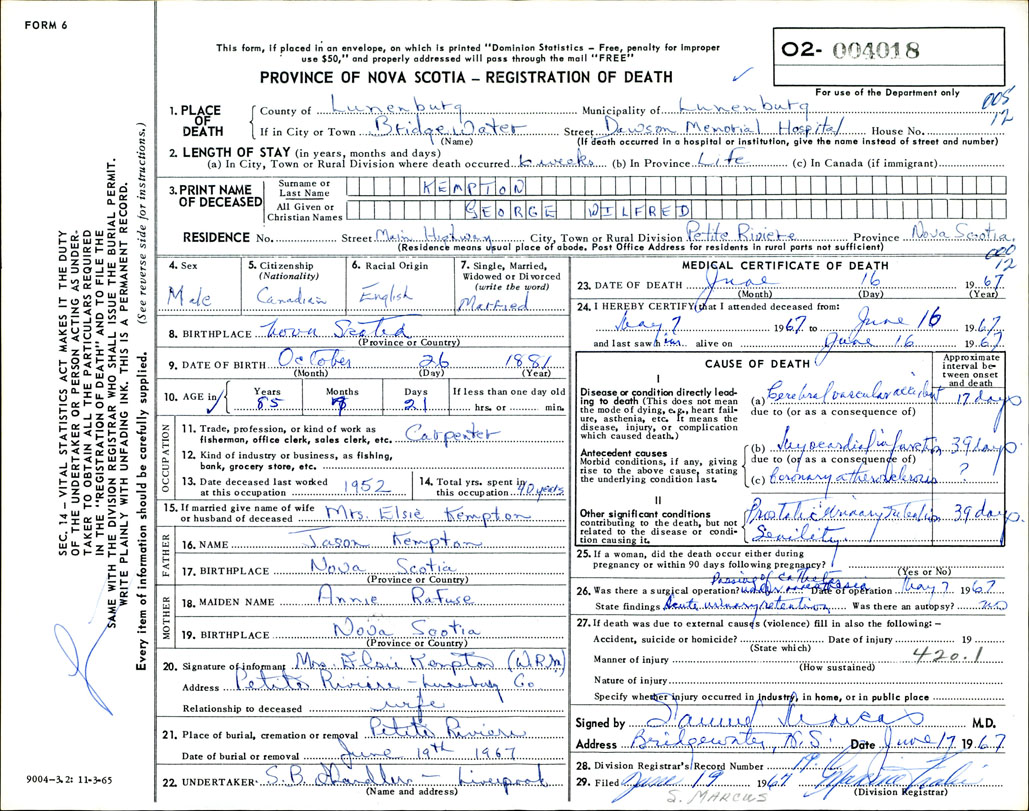 FORM 6
This form, if placed in an envelope, on which is printed "Dominion Statistics – Free, penalty for improper
use $50," and properly addressed will pass through the mail "FREE"
PROVINCE OF NOVA SCOTIA – REGISTRATION OF DEATH
O2- 004018
For use of the Department only
005
12
1. PLACE OF DEATH
County of Lunenburg Municipality of Lunenburg
If in City or Town Bridgewater Street Dawson Memorial Hospital House No.
(Name) (If death occurred in a hospital or institution, give the name instead of street and number)
2. LENGTH OF STAY (in years, months and days)
(a) In City, Town or Rural Division where death occurred 6 weeks (b) In Province Life (c) In Canada (if immigrant)
3. PRINT NAME OF DECEASED
Surname or Last Name KEMPTON
All Given or Christian Names GEORGE WILFRED
RESIDENCE No. Street Main Highway City, Town or Rural Division Petite Riviere Province Nova Scotia
(Residence means usual place of abode. Post Office Address for residents in rural parts not sufficient)
000
12
4. Sex Male
5. Citizenship (Nationality) Canadian
6. Racial Origin English
7. Single, Married, Widowed or Divorced (write the word) Married
8. BIRTHPLACE Nova Scotia
(Province or Country)
9. DATE OF BIRTH October 26 1881
(Month) (Day) (Year)
10. AGE in Years 85 Months 8 Days 21 If less than one day old hrs. or min.
OCCUPATION
11. Trade, profession, or kind of work as fisherman, office clerk, sales clerk, etc. Carpenter
12. Kind of industry or business, as fishing, bank, grocery store, etc.
13. Date deceased last worked at this occupation 1952
14. Total yrs. spent in this occupation 40 years
15. If married give name of wife or husband of deceased Mrs. Elsie Kempton
FATHER
16. NAME Jason Kempton
17. BIRTHPLACE Nova Scotia
(Province or Country)
MOTHER
18. MAIDEN NAME Annie Rafuse
19. BIRTHPLACE Nova Scotia
(Province or Country)
20. Signature of informant Mrs. Elsie Kempton
Address Petite Riviere – Lunenburg Co.
Relationship to deceased wife
21. Place of burial, cremation or removal Petite Riviere
Date of burial or removal June 19th 1967
22. UNDERTAKER: S.B. Chandler – Liverpool
(Name and address)
MEDICAL CERTIFICATE OF DEATH
23. DATE OF DEATH June 16 1967
(Month) (Day) (Year)
24. I HEREBY CERTIFY that I attended deceased from:
May 7 1967 to June 16 1967
and last saw him alive on June 16 1967
CAUSE OF DEATH
Approximate interval between onset and death
I
Disease or condition directly leading to death (This does not mean the mode of dying, e.g., heart failure, asthenia, etc. It means the disease, injury, or complication which caused death.)
(a) Cerebral vascular accident 17 days
due to (or as a consequence of)
Antecedent causes
Morbid conditions, if any, giving rise to the above cause, stating the underlying condition last.
(b) Myocardial infarction 39 days
due to (or as a consequence of)
(c) Coronary atherosclerosis ?
II
Other significant conditions
contributing to the death, but not related to the disease or condition causing it.
Prostatic Urinary retention 39 days
Senility.
25. If a woman, did the death occur either during
pregnancy or within 90 days following pregnancy?
(Yes or No)
26. Was there a surgical operation? Passing of catheter Date of operation May 7 1967
State findings Acute urinary retention Was there an autopsy? no
27. If death was due to external causes (violence) fill in also the following: –
Accident, suicide or homicide? Date of injury 19
(State which)
Manner of injury 420.1
(How sustained)
Nature of injury
Specify whether injury occurred in Industry, in home, or in public place
Signed by Samuel Marcus M.D.
Address Bridgewater, N.S. Date June 17 1967
28. Division Registrar's Record Number 19
29. Filed June 19 1967
(Division Registrar)
S. MARCUS
SEC. 14 – VITAL STATISTICS ACT MAKES IT THE DUTY
OF THE UNDERTAKER OR PERSON ACTING AS UNDER-
TAKER TO OBTAIN ALL THE PARTICULARS REQUIRED
IN THE "REGISTRATION OF DEATH" AND FILE THE
SAME WITH THE DIVISION REGISTRAR WHO SHALL ISSUE THE BURIAL PERMIT.
WRITE PLAINLY WITH UNFADING INK. THIS IS A PERMANENT RECORD.
Every item of information should be carefully supplied. (See reverse side for instructions.)
9004-3.2: 11-3-65